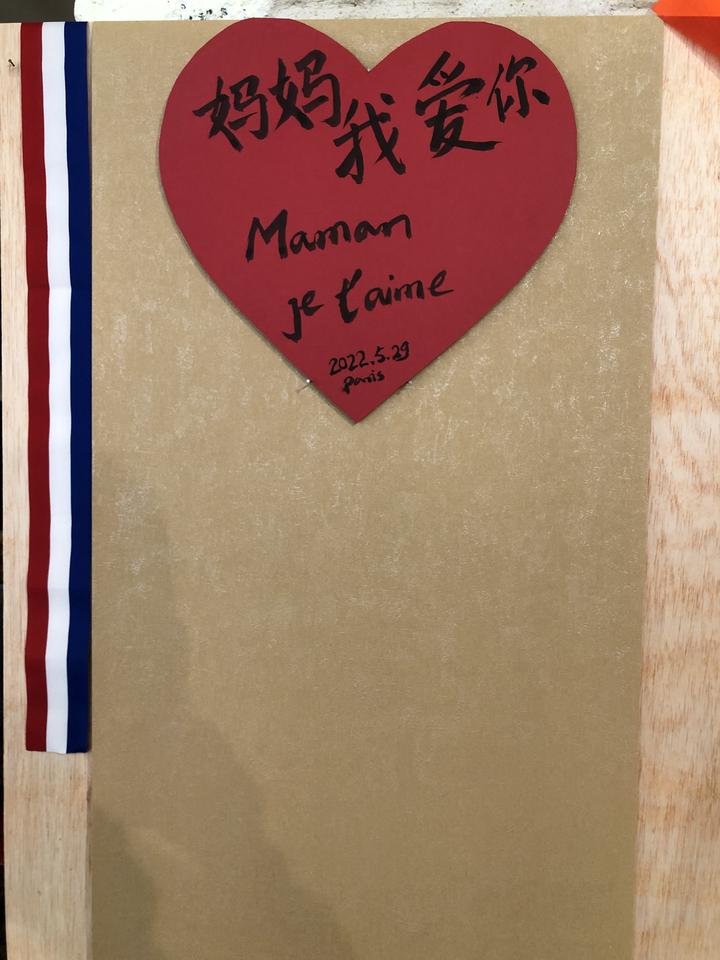 妈妈我爱你
Maman
je t'aime
2022.5.29
Paris